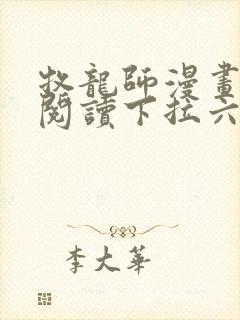 牧龍師漫畫
閱讀下拉六
李大華